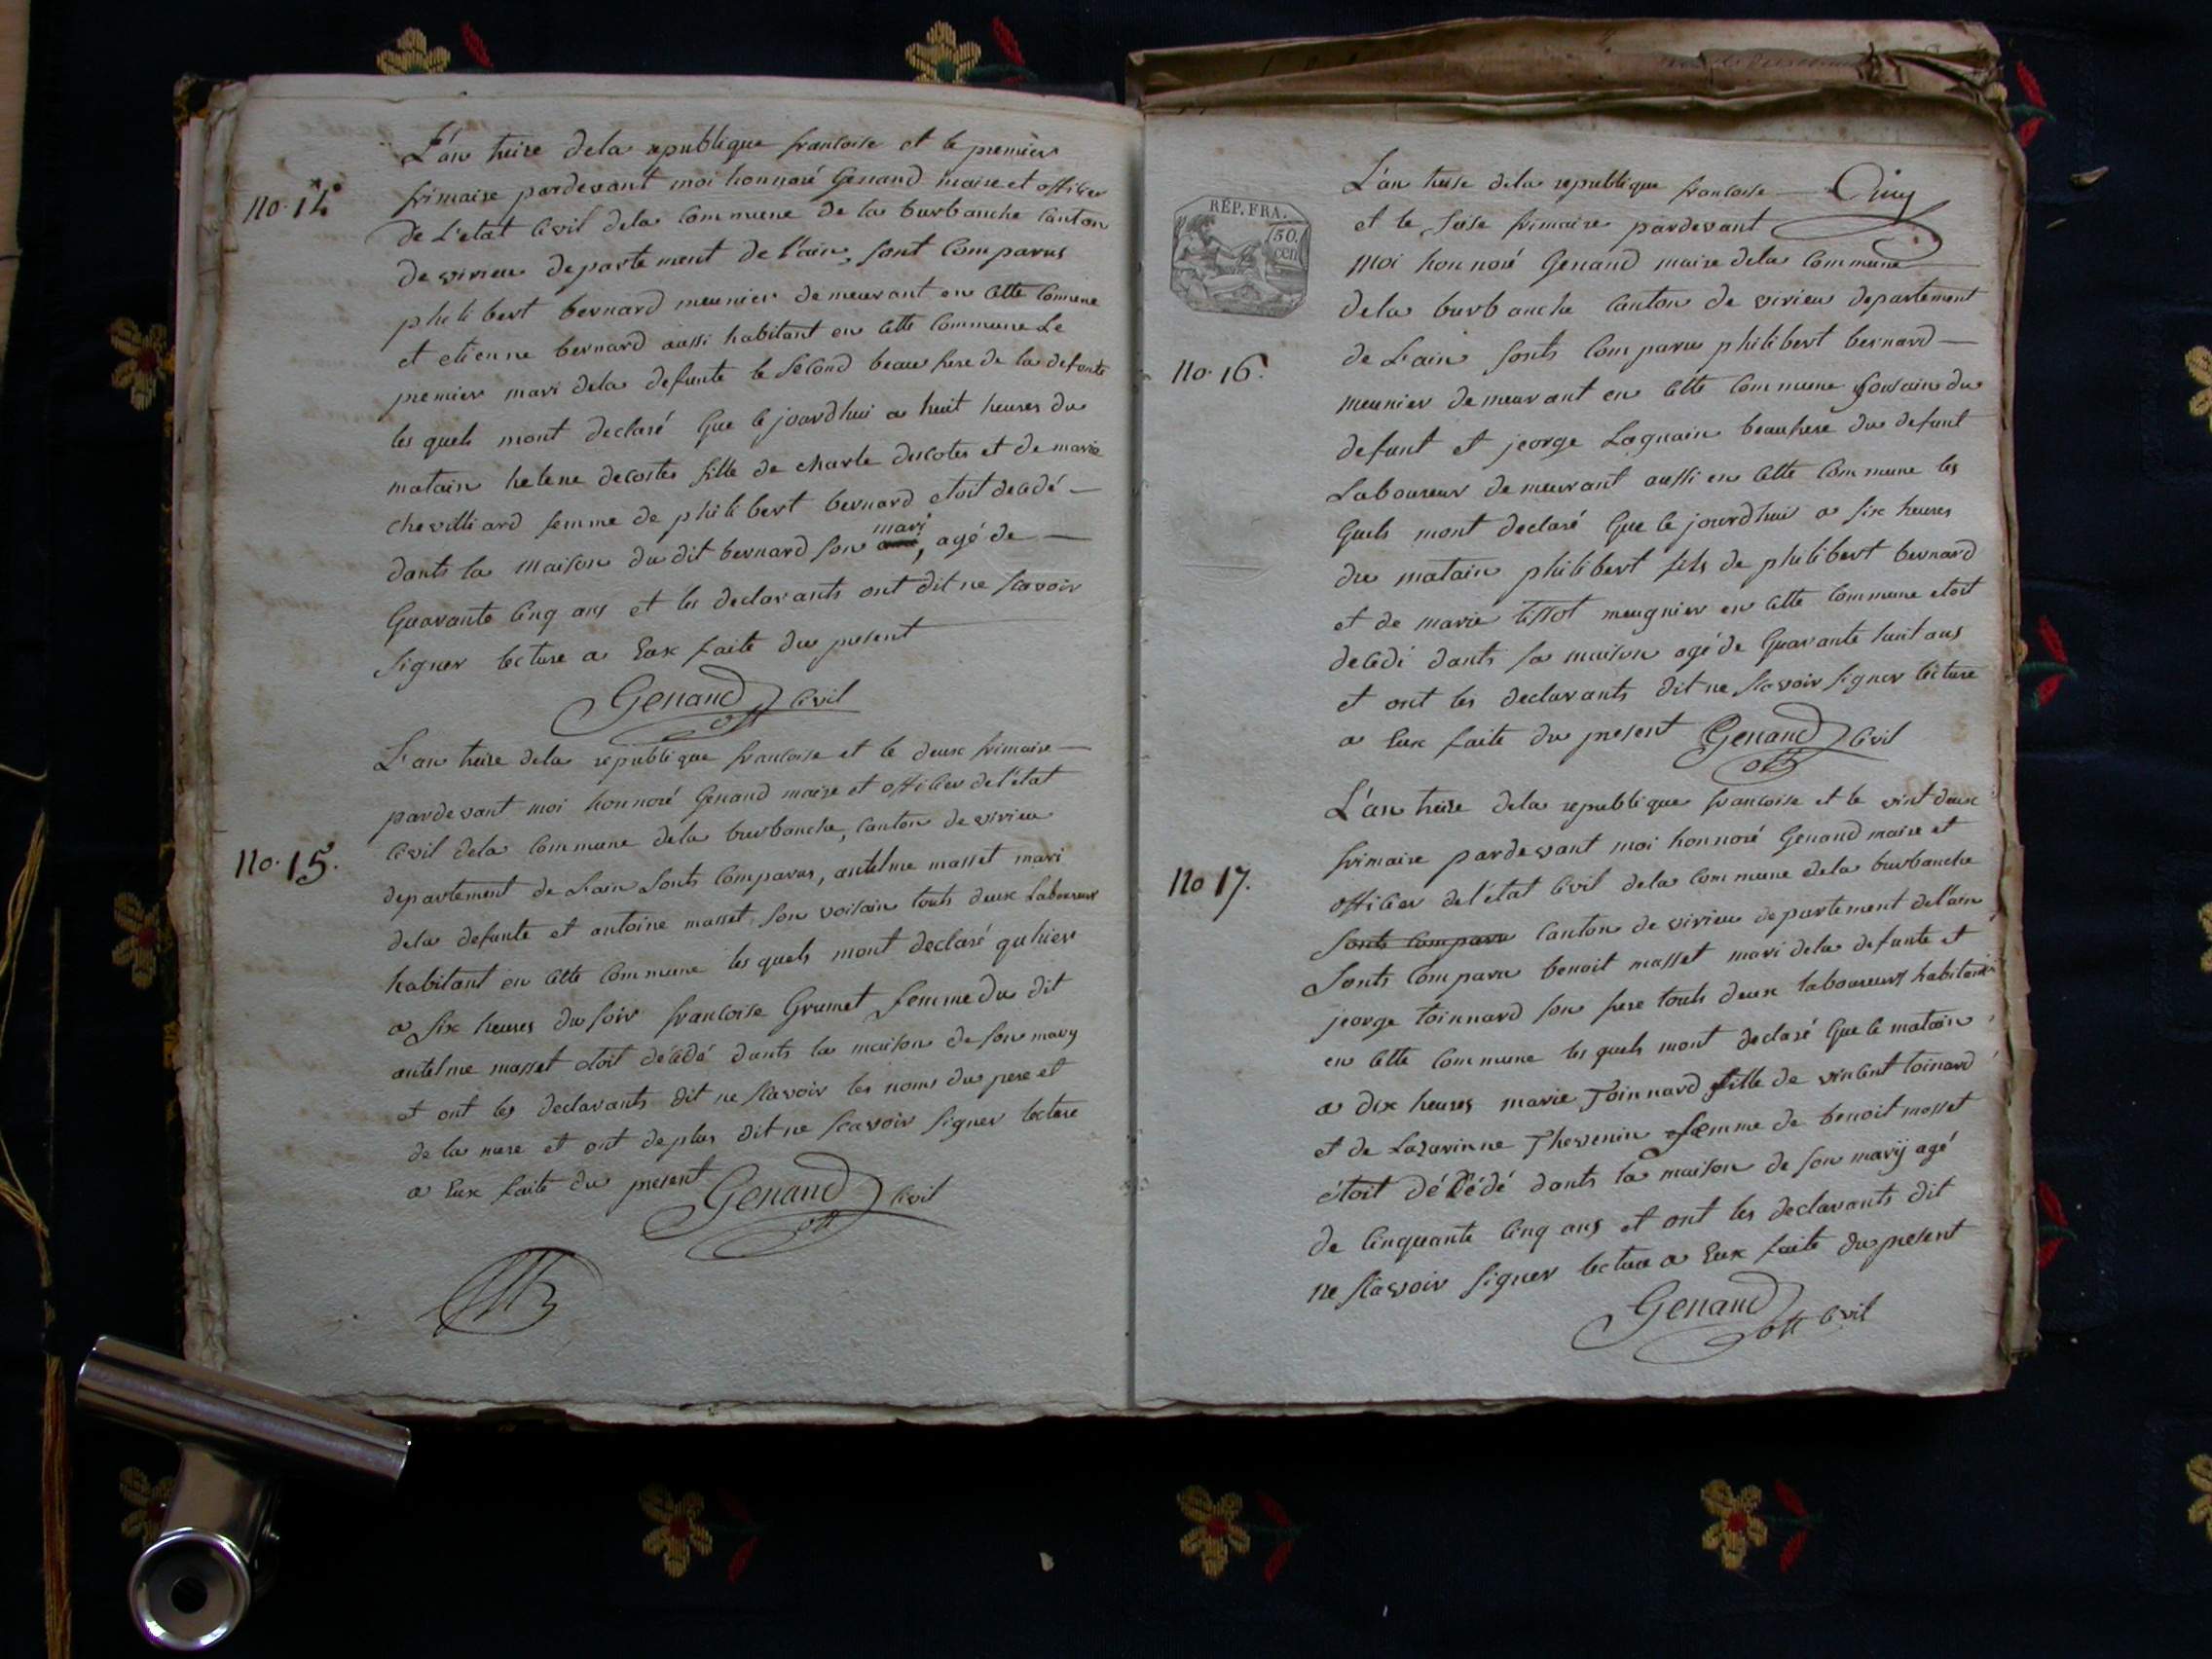 L'an treise dela republique francoise et le premier
no. 14. frimaire pardevant moi honnoré Genand maire et officier
de L'etat Civil dela Commune de la burbanche Canton
de virieu departement de l'ain, sont Comparus
philibert bernard meunier demeurant en Cette Comune
et etienne bernard aussi habitant en Cette Commune Le
premier mari dela defunte le second beau frere de la defunte
les quels mont declaré que le jourdhui a huit heures du
matain helene decostes fille de charle decotes et de marie
chevilliard femme de philibert bernard etoit decedé
mari
dants la maison du dit bernard son , agé de
quarante Cinq ans et les declarants ont dit ne scavoir
signer lecture a Eux faite du present
Genand off Civil
L'an treise dela republique francoise et le deux frimaire
pardevant moi honnoré Genand maire et officier del'état
no. 15. Civil dela Commune dela burbanche, Canton de virieu
departement de L'ain sonts Comparus, antelme masset mari
dela defunte et antoine masset son voisain touts deux Laboureur
habitant en Cette Commune les quels mont declaré quhier
a six heures du soir francoise Grumet femme du dit
antelme masset etoit décédé dants la maison de son mary
et ont les declarants dit ne scavoir les noms du pere et
de la mere et ont de plus dit ne scavoir signer lecture
a Eux faite du présent Genand off Civil
RÉP. FRA.
50.
cen
L'an treise dela republique francoise
et le seise frimaire pardevant
moi honnoré Genand maire dela Commune
dela burbanche Canton de virieu departement
de L'ain sonts Comparu philibert bernard
no. 16. meunier demeurant en Cette Commune du
defunt et jeorge Lagnain beaufrere du defunt
Laboureur demeurant aussi en Cette Commune les
quels mont declaré que le jourdhui a six heures
du matain philibert fils de philibert bernard
et de marie tissot meugnier en Cette Commune etoit
decedé dants sa maison agé de quarante huit ans
et ont les declarants dit ne scavoir signer lecture
a Eux faite du present Genand off Civil
L'an treise dela republique francoise et le vint deux
frimaire pardevant moi honnoré Genand maire et
no 17. officier del'état Civil dela Commune dela burbanche
sonts Comparu Canton de virieu departement del'ain
sonts Comparu benoit masset mari dela defunte et
jeorge toinnard son frere touts deux laboureurs habitant
en Cette Commune les quels mont declaré que le matain
a dix heures marie Toinnard fille de vincent toinard
et de Lazarinne Thevenin femme de benoit masset
étoit décédé dants la maison de son marij agé
de Cinquante Cinq ans et ont les declarants dit
ne scavoir signer lecture a Eux faite du present
Genand off Civil